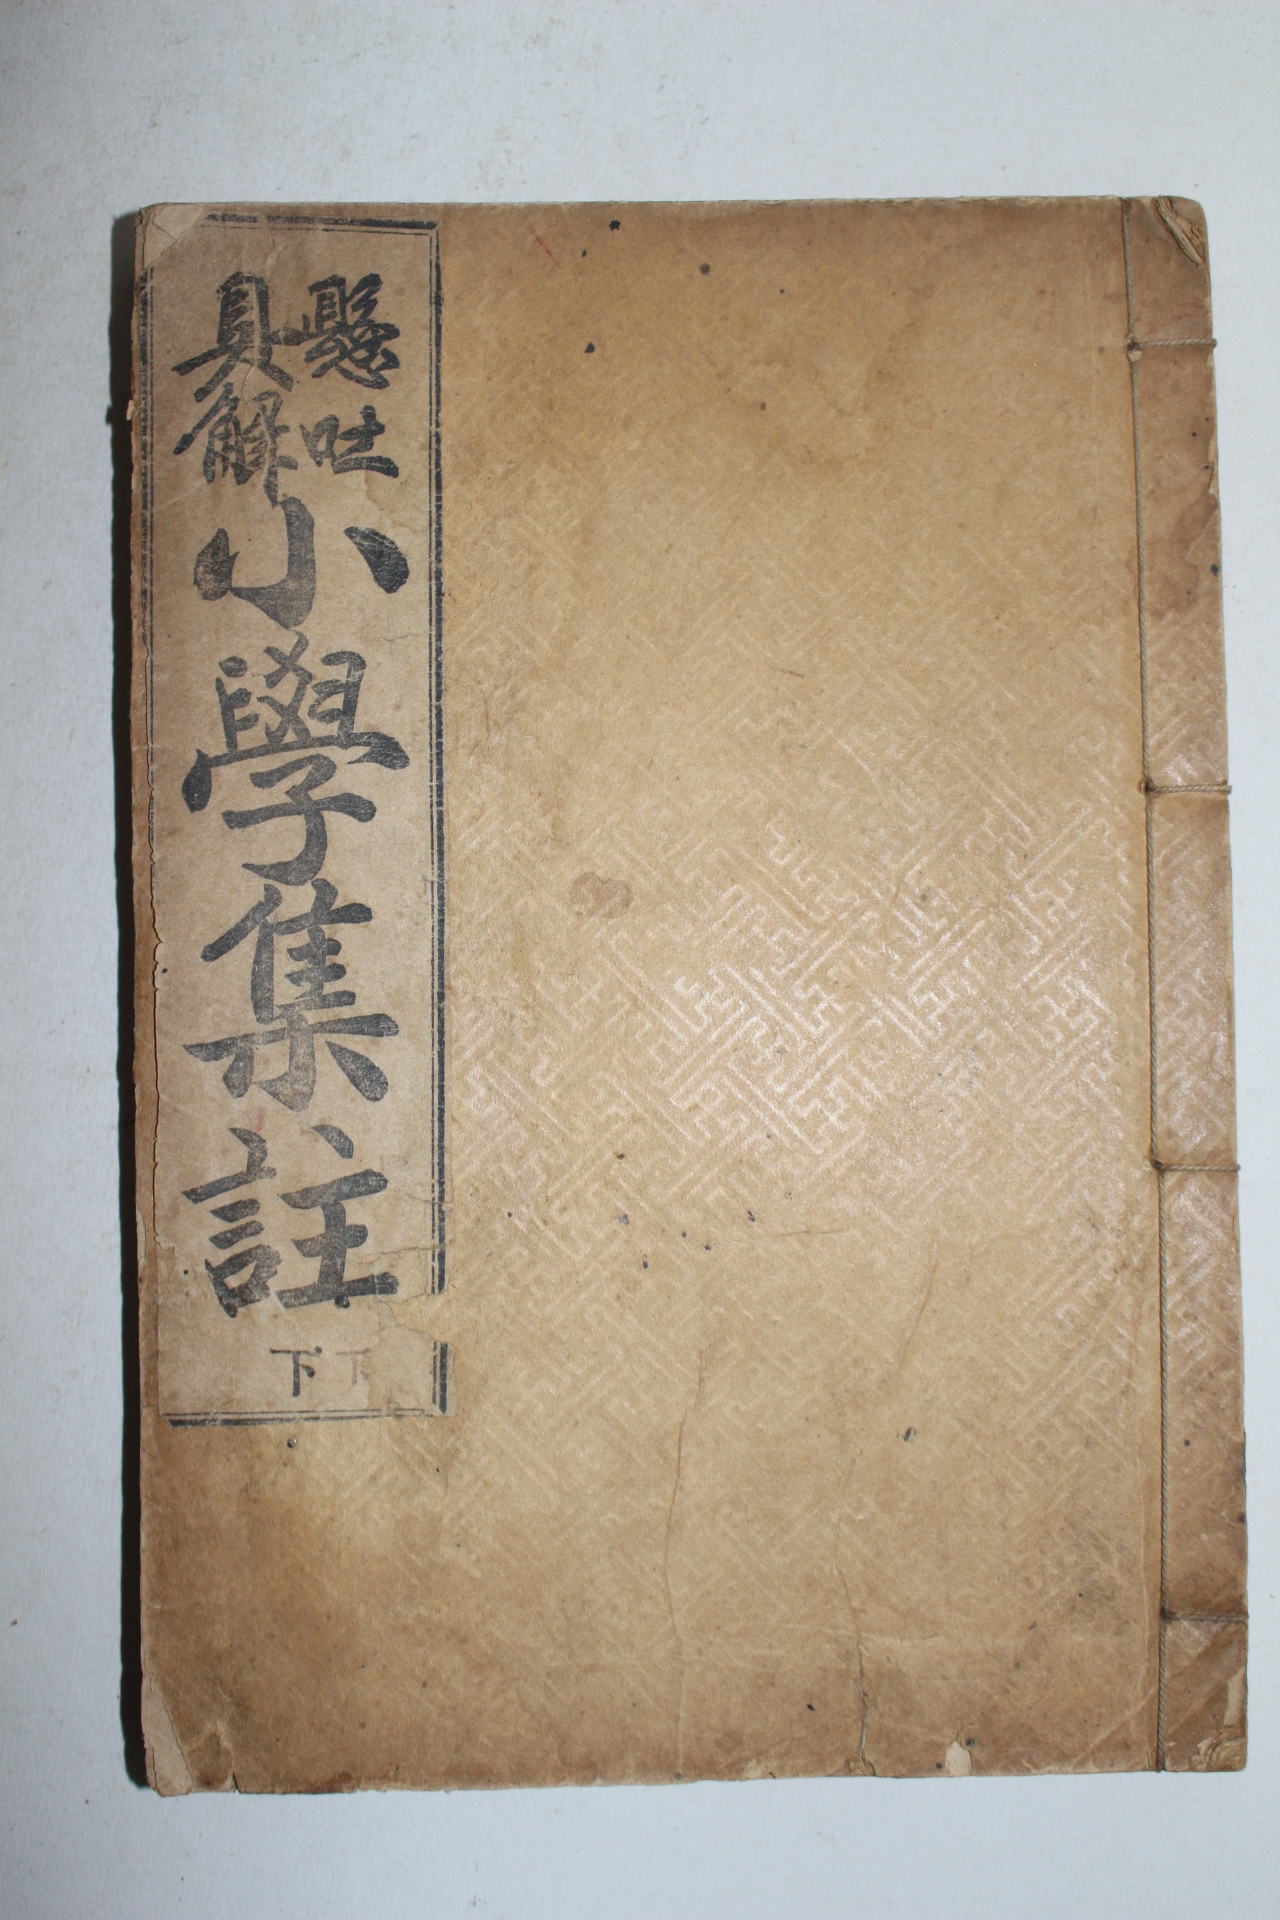 懸吐
具解
小學集註
下